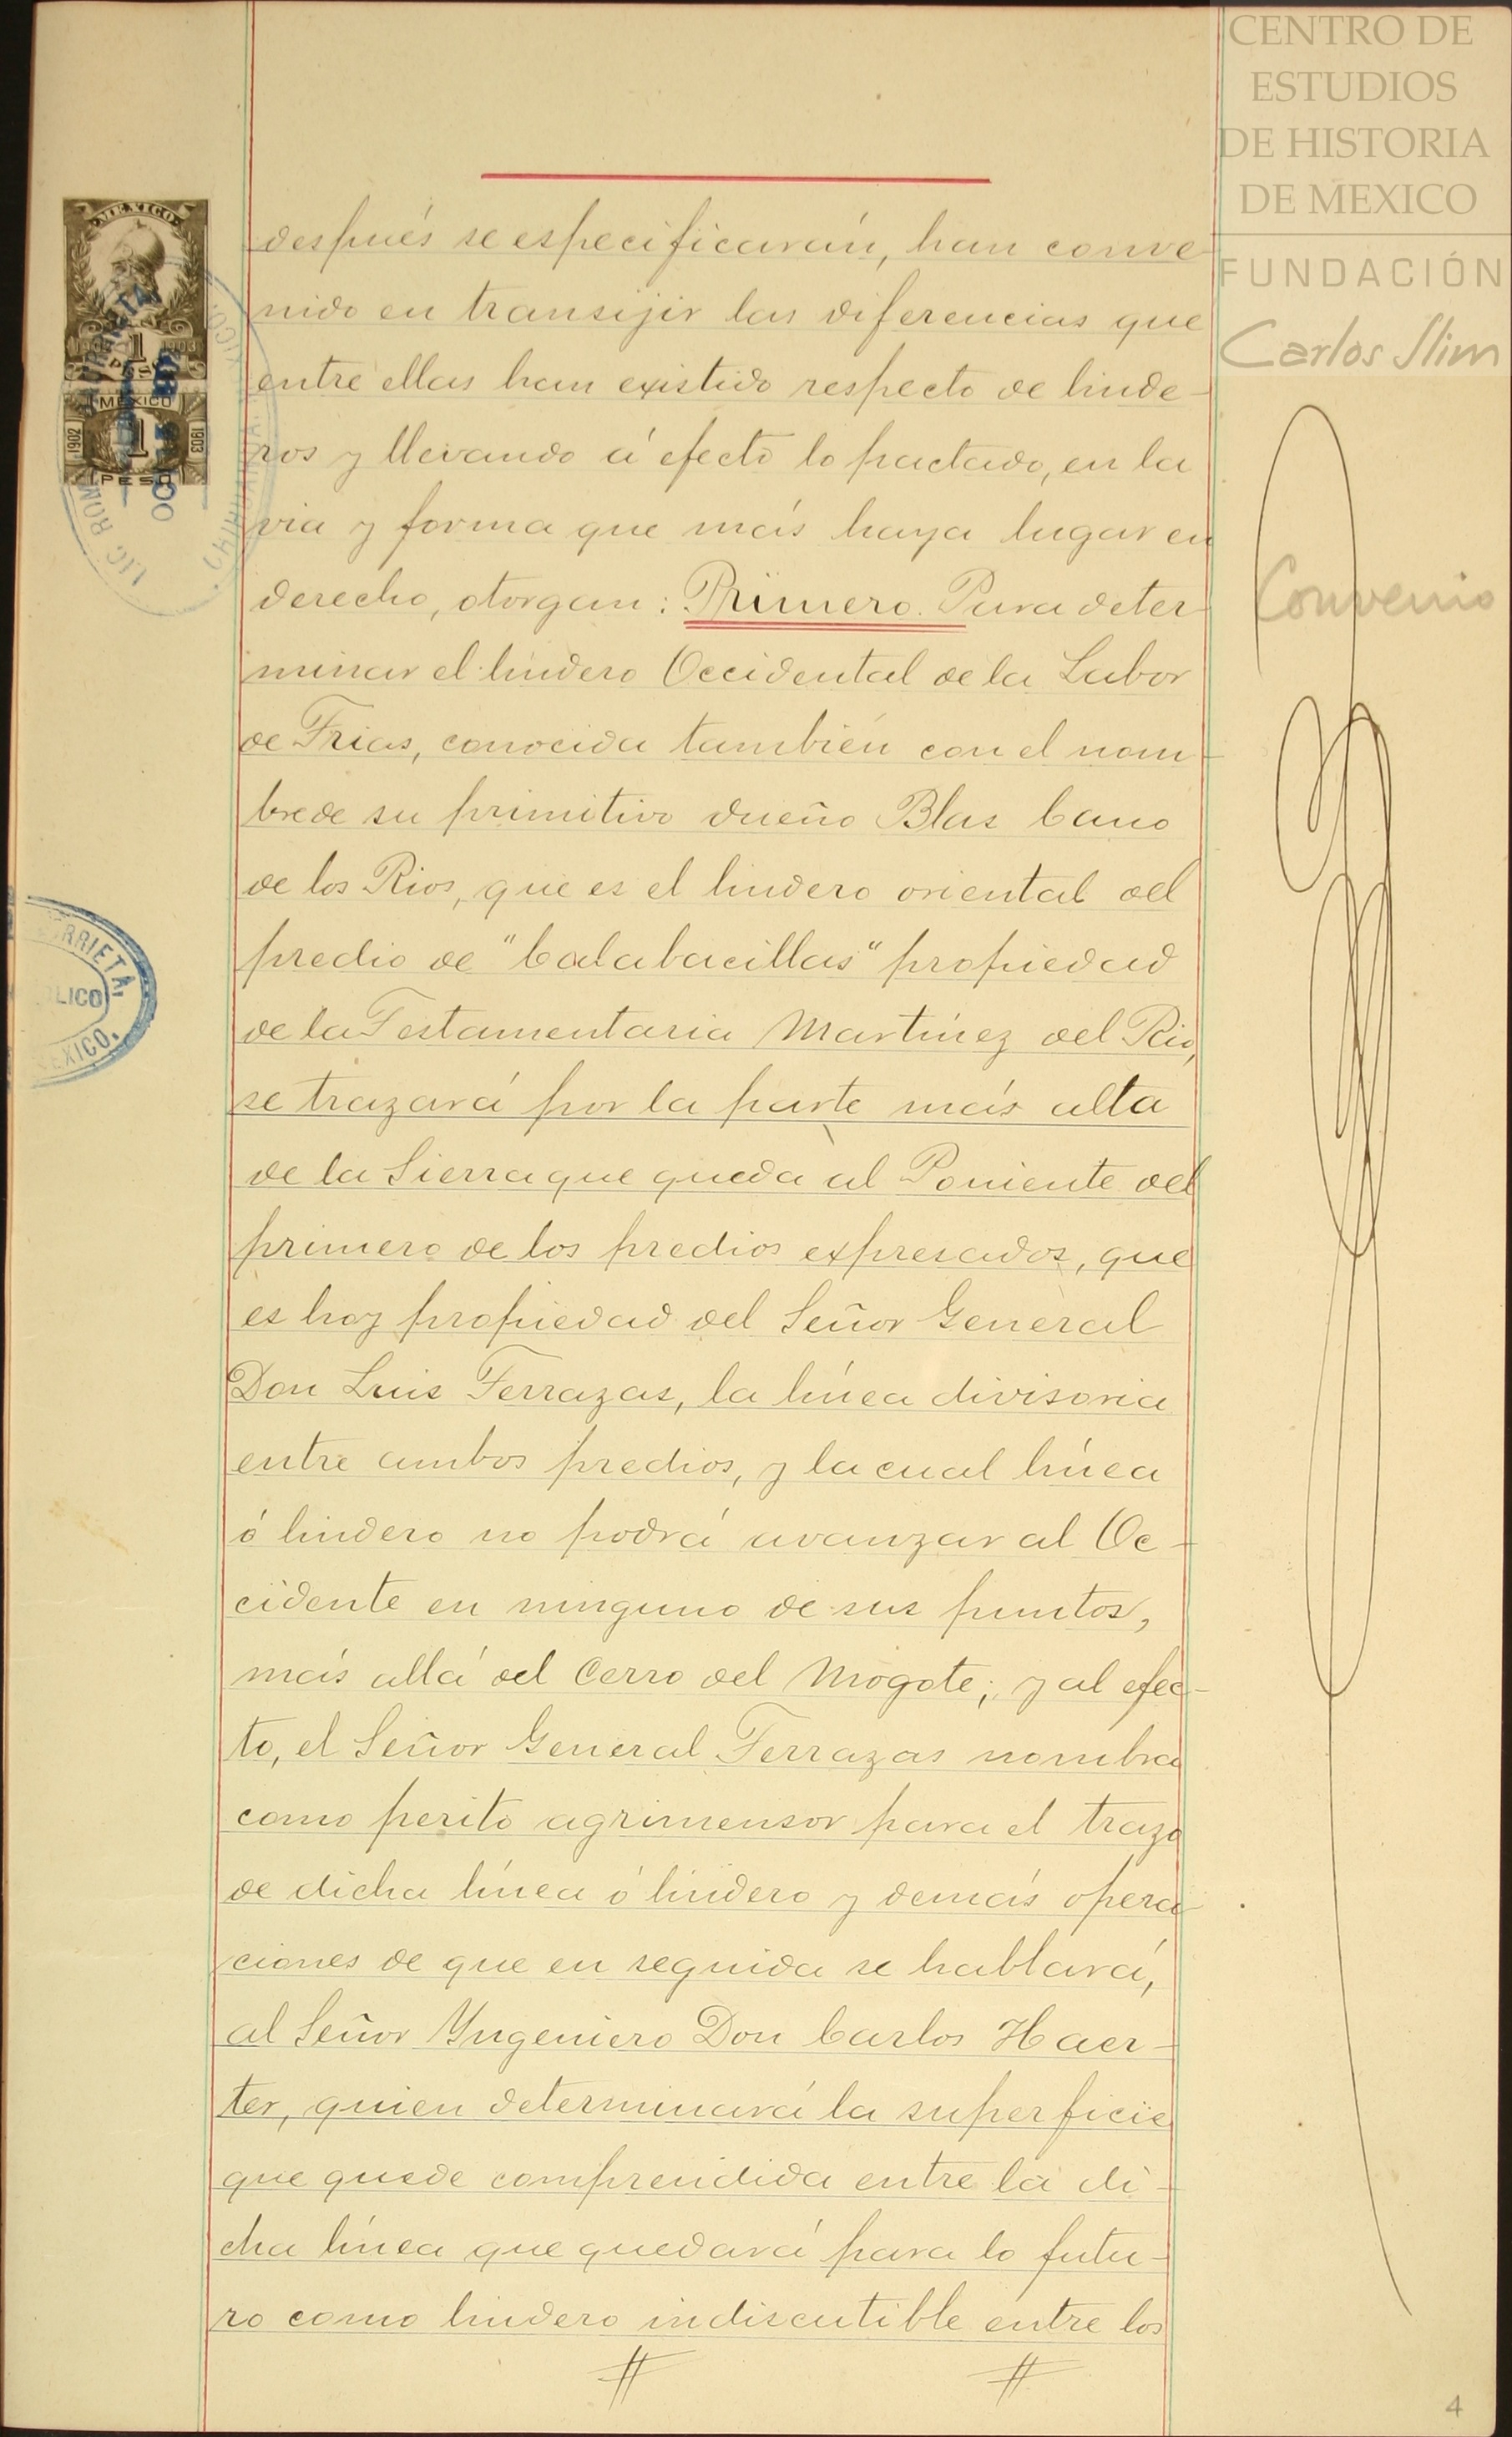 CENTRO DE
ESTUDIOS
DE HISTORIA
DE MEXICO
FUNDACIÓN
Carlos Slim
MEXICO
1902 1 1903
PESO
MEXICO
1902 1 1903
PESO
después se especificarán, han conve-
nido en transijir las diferencias que
entre ellas han existido respecto de linde-
ros y llevando á efecto lo pactado, en la
via y forma que más haya lugar en
derecho, otorgan: Primero. Para deter-
minar el lindero Occidental de la Labor
de Frias, conocida también con el nom-
bre de su primitivo dueño Blas Cano
de los Rios, que es el lindero oriental del
predio de "Calabacillas" propiedad
de la Testamentaria Martínez del Rio,
se trazará por la parte más alta
de la Sierra que queda al Poniente del
primero de los predios expresados, que
es hoy propiedad del Señor General
Don Luis Terrazas, la línea divisoria
entre ambos predios, y la cual línea
ó lindero no podrá avanzar al Oc-
cidente en ninguno de sus puntos,
más allá del Cerro del Mogote; y al efec-
to, el Señor General Terrazas nombra
como perito agrimensor para el trazo
de dicha línea ó lindero y demás opera
ciones de que en seguida se hablará,
al Señor Yngeniero Don Carlos Haer-
ter, quien determinará la superficie
que quede comprendida entre la di-
cha línea que quedará para lo futu-
ro como lindero indiscutible entre los
Convenio
RRIETA,
LICO
EXICO.
4